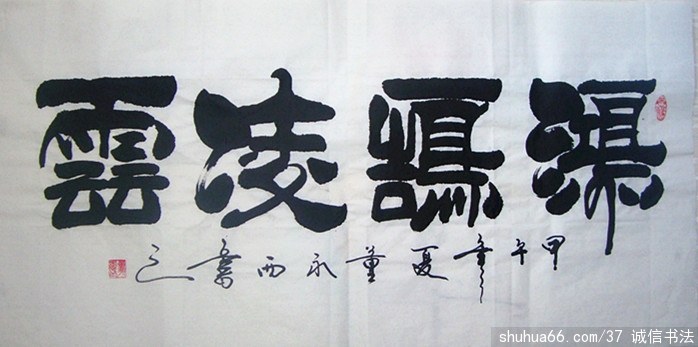 鴻鵠凌雲
甲午年夏董永西書之
shuhua66.com/37 诚信书法